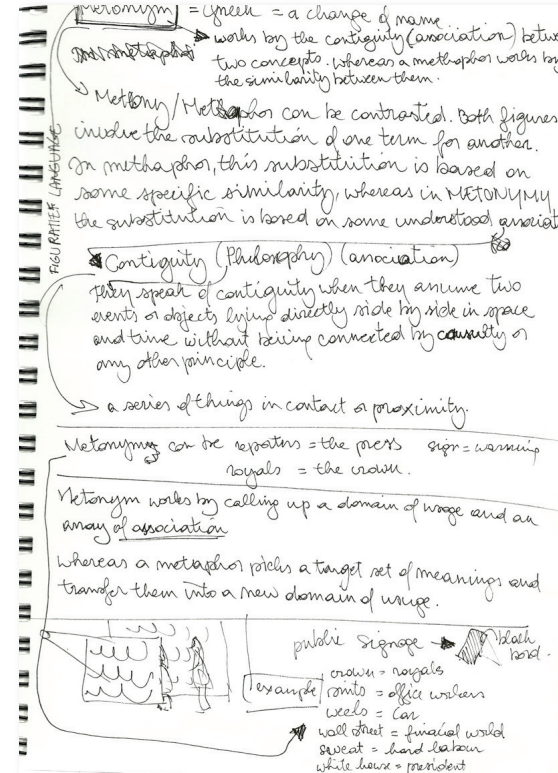 Metonym = Greek = a change of name
works by the contiguity (association) betwe
two concepts. whereas a methaphor works by
the similarity between them.
Metony/Metaphor can be contrasted. Both figures
involve the substitution of one term for another.
In methaphor, this substitution is based on
some specific similarity, whereas in METONYMY
the substitution is based on some understood associat
FIGURATIEF LANGUAGE
Contiguity (Philosophy) (association)
they speak of contiguity when they assume two
events or objects lying directly side by side in space
and time without being connected by causulty or
any other principle.
a series of things in contact or proximity.
Metonymy can be reporters = the press sign = warning
royals = the crown.
Metonym works by calling up a domain of usage and an
array of association
whereas a metaphor picks a target set of meanings and
transfer them into a new domain of usuge.
public signage black
bord.
example
crown = royals
= office workers
weels = car
wall street = finacial world
sweat = hard labour
white house = president